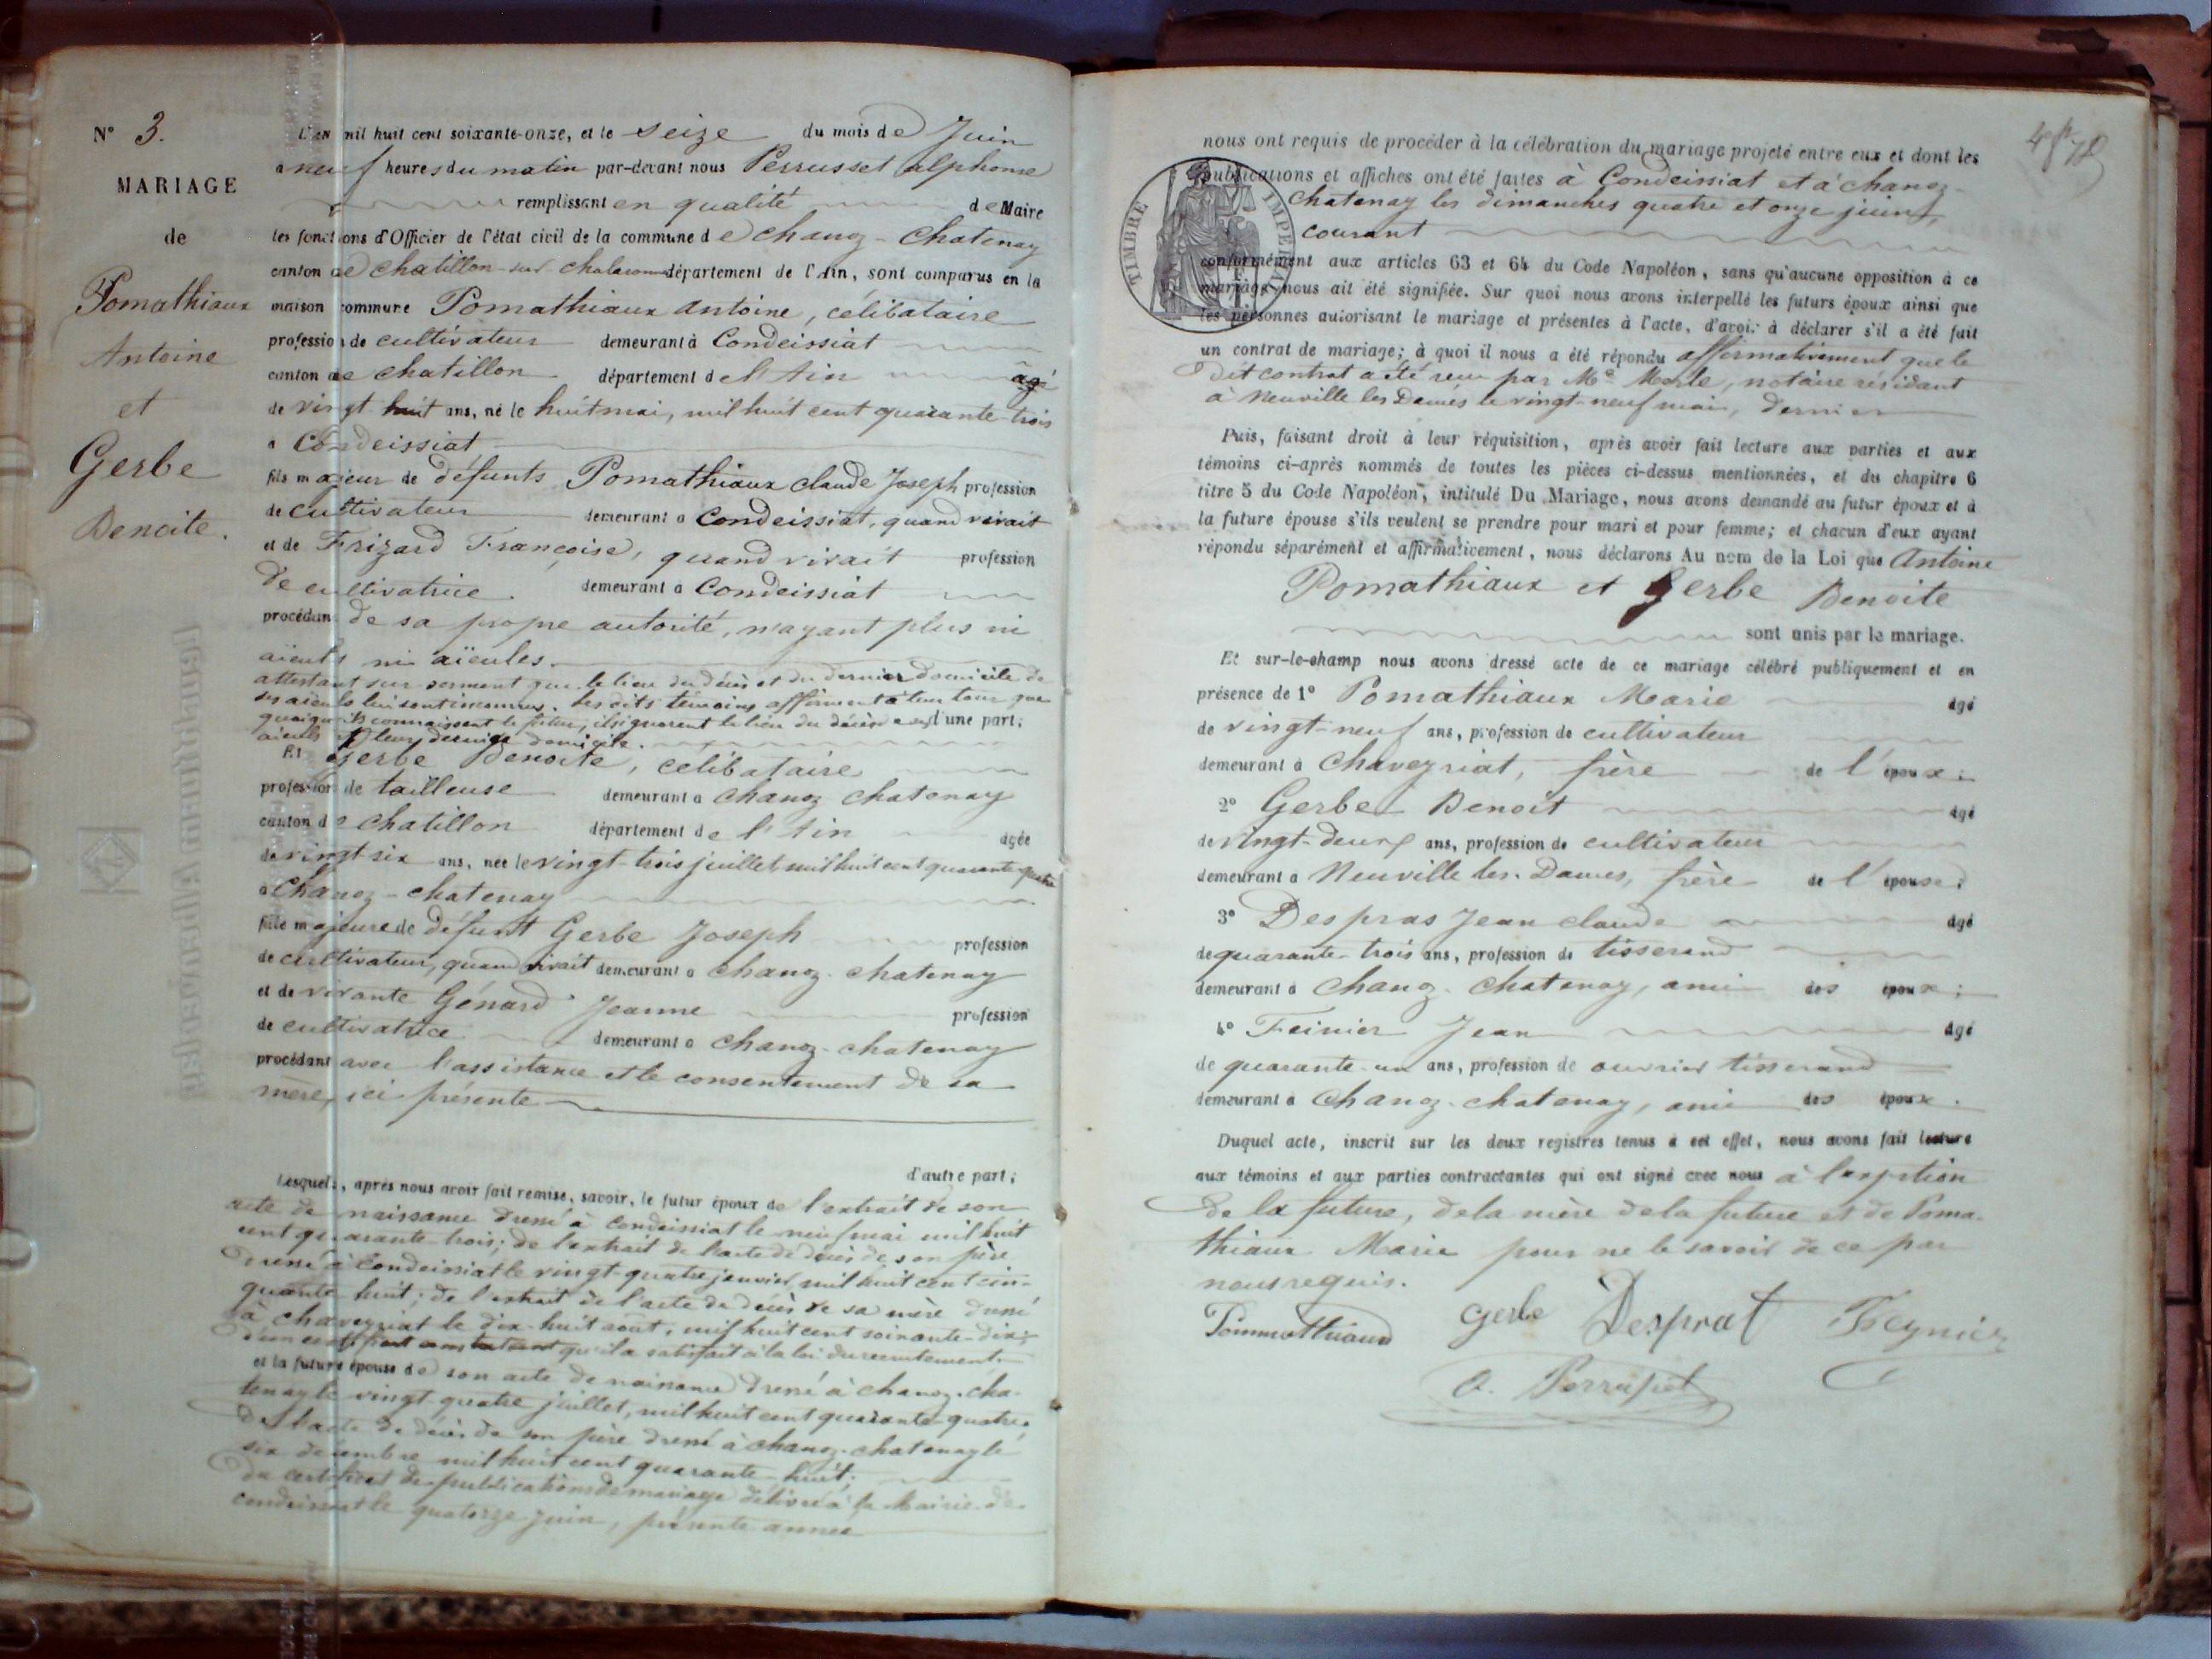 N° 3.
MARIAGE
de
Pomathiaux
Antoine
et
Gerbe
Benoite.
L'an mil huit cent soixante-onze, et le seize du mois de Juin
a neuf heures du matin par-devant nous Perrusset alphonse
remplissant en qualité de Maire
les fonctions d'Officier de l'état civil de la commune de Chanoz-Chatenay
canton de Chatillon-sur-Chalaronne département de l'Ain, sont comparus en la
maison commune Pomathiaux Antoine, célibataire
profession de cultivateur demeurant à Condeissiat
canton de Chatillon département de l'Ain âgé
de vingt huit ans, né le huit mai, mil huit cent quarante-trois
a Condeissiat
fils majeur de défunts Pomathiaux Claude Joseph profession
de cultivateur demeurant a Condeissiat, quand vivait
et de Frizard Françoise, quand vivait profession
de cultivatrice. demeurant a Condeissiat
procédant de sa propre autorité, n'ayant plus ni
aïeuls ni aïeules.
attestant sur serment que le lieu du décès et du dernier domicile de
ses aïeuls lui sont inconnus. Lesdits témoins affirment à leur tour que
quoiqu'ils connaissent le futur, ils ignorent le lieu du décès des d'une part;
aïeuls et leur dernier domicile.
Et Gerbe Benoite, célibataire
profession de tailleuse demeurant a Chanoz Chatenay
canton de Chatillon département de l'Ain agée
de vingt six ans, née le vingt-trois juillet mil huit cent quarante-quatre
a Chanoz-Chatenay
fille majeure de défunt Gerbe Joseph profession
de cultivateur, quand vivait demeurant a Chanoz-Chatenay
et de vivante Génard Jeanne profession
de cultivatrice demeurant a Chanoz-Chatenay
procédant avec l'assistance et le consentement de sa
mère, ici présente
d'autre part;
Lesquels, après nous avoir fait remise, savoir, le futur époux de l'extrait de son
acte de naissance dressé à Condeissiat le neuf mai mil huit
cent quarante trois; de l'extrait de l'acte de décès de son père
dressé à Condeissiat le vingt-quatre janvier mil huit cent cin-
quante huit; de l'extrait de l'acte de décès de sa mère dressé
à Chaveyriat le dix-huit août, mil huit cent soixante-dix;
d'un certificat constatant qu'il a satisfait à la loi du recrutement
et la future épouse de son acte de naissance dressé à Chanoz-Cha-
tenay le vingt quatre juillet, mil huit cent quarante-quatre,
de l'acte de décès de son père dressé à Chanoz-Chatenay le
six décembre mil huit cent quarante-huit;
du certificat de publications de mariage délivré à la Mairie de
Condeissiat le quatorze juin, présente année
nous ont requis de procéder à la célébration du mariage projeté entre eux et dont les
publications et affiches ont été faites à Condeissiat et à Chanoz-
Chatenay les dimanches quatre et onze juin,
courant
TIMBRE IMPERIAL
conformément aux articles 63 et 64 du Code Napoléon, sans qu'aucune opposition à ce
mariage nous ait été signifiée. Sur quoi nous avons interpellé les futurs époux ainsi que
les personnes autorisant le mariage et présentes à l'acte, d'avoir à déclarer s'il a été fait
un contrat de mariage; à quoi il nous a été répondu affirmativement que le
dit contrat a été reçu par Me Merle, notaire résidant
à Neuville les Dames le vingt-neuf mai, dernier
Puis, faisant droit à leur réquisition, après avoir fait lecture aux parties et aux
témoins ci-après nommés de toutes les pièces ci-dessus mentionnées, et du chapitre 6
titre 5 du Code Napoléon, intitulé Du Mariage, nous avons demandé au futur époux et à
la future épouse s'ils veulent se prendre pour mari et pour femme; et chacun d'eux ayant
répondu séparément et affirmativement, nous déclarons Au nom de la Loi que Antoine
Pomathiaux et Gerbe Benoite
sont unis par le mariage.
Et sur-le-champ nous avons dressé acte de ce mariage célébré publiquement et en
présence de 1° Pomathiaux Marie âgé
de vingt-neuf ans, profession de cultivateur
demeurant à Chaveyriat, frère de l'époux;
2° Gerbe Benoit âgé
de vingt-deux ans, profession de cultivateur
demeurant a Neuville les Dames, frère de l'épouse;
3° Despras Jean Claude âgé
de quarante-trois ans, profession de tisserand
demeurant à Chanoz-Chatenay, ami des époux;
4° Feinier Jean âgé
de quarante-un ans, profession de ouvrier tisserand
demeurant a Chanoz-Chatenay, ami des époux.
Duquel acte, inscrit sur les deux registres tenus a cet effet, nous avons fait lecture
aux témoins et aux parties contractantes qui ont signé avec nous à l'exception
de la future, de la mère de la future et de Poma-
thiaux Marie pour ne le savoir de ce par
nous requis.
Pommathiaud Gerbe Desprat Feynier
A. Perrusset